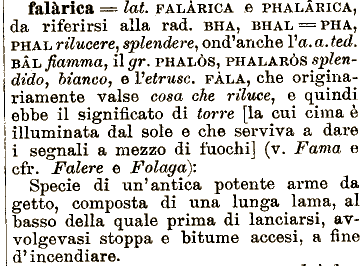 falàrica = lat. FALÀRICA e PHALÂRICA,
da riferirsi alla rad. BHA, BHAL = PHA,
PHAL rilucere, splendere, ond'anche l'a.a.ted.
BÂL fiamma, il gr. PHALÒS, PHALARÒS splen-
dido, bianco, e l'etrusc. FÀLA, che origina-
riamente valse cosa che riluce, e quindi
ebbe il significato di torre [la cui cima è
illuminata dal sole e che serviva a dare
i segnali a mezzo di fuochi] (v. Fama e
cfr. Falere e Folaga):
Specie di un'antica potente arme da
getto, composta di una lunga lama, al
basso della quale prima di lanciarsi, av-
volgevasi stoppa e bitume accesi, a fine
d'incendiare.